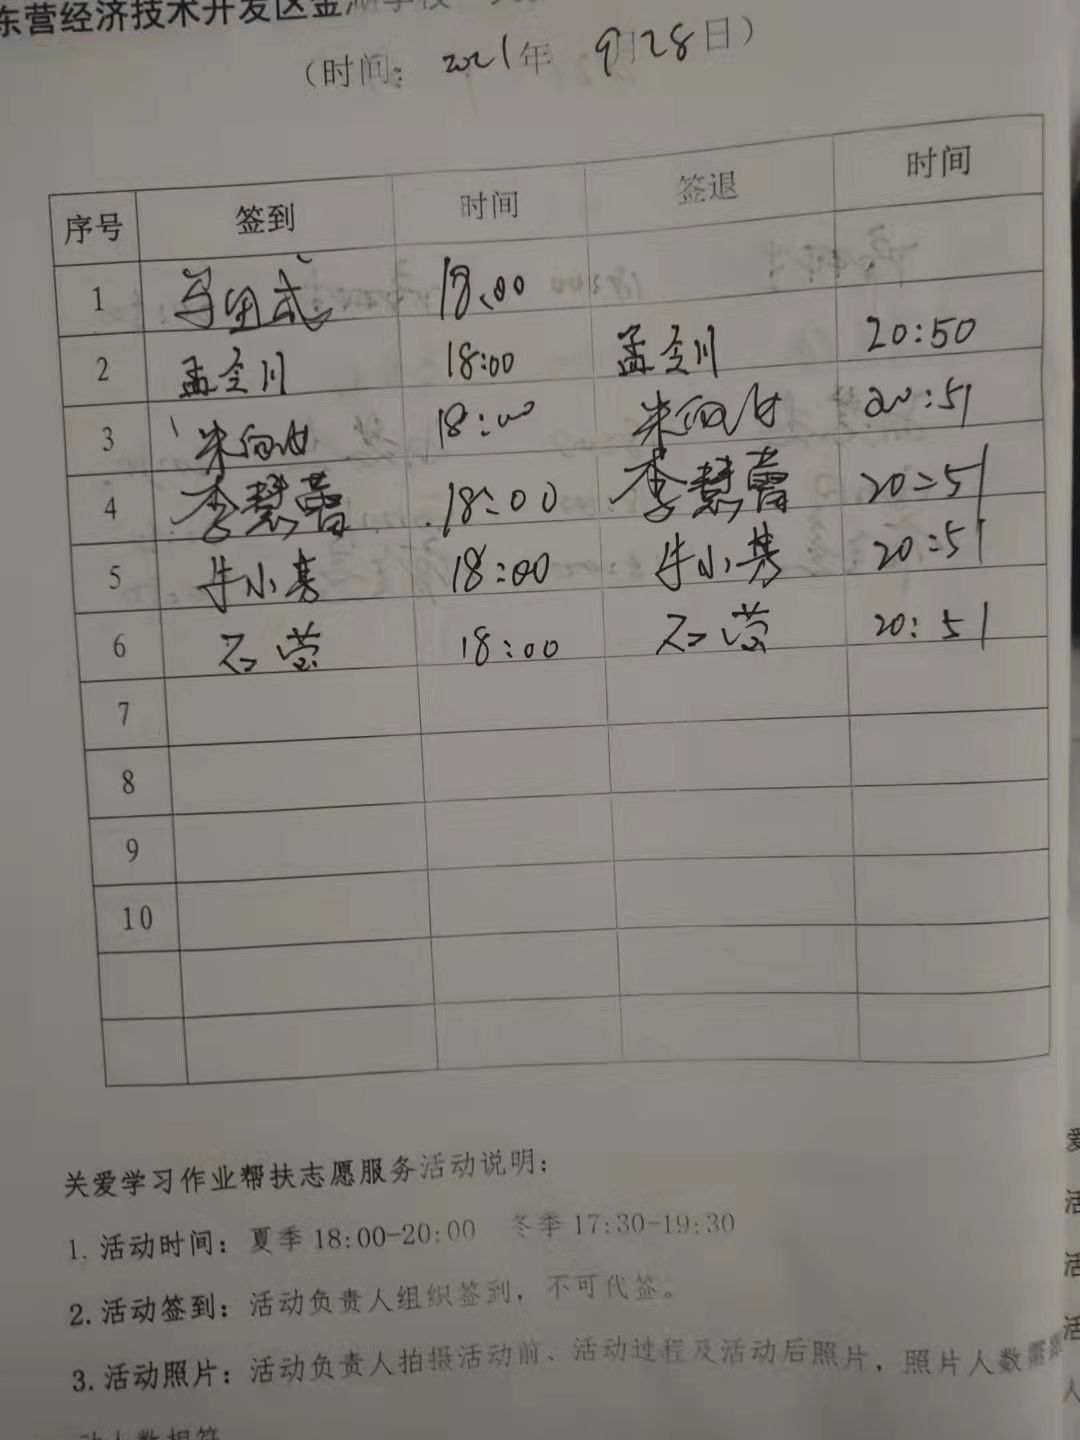 东营经济技术开发区金湖学校
（时间：2021年 9月28日）
序号 签到 时间 签退 时间
1 18:00
2 孟令川 18:00 孟令川 20:50
3 18:00 20:51
4 李慧蕾 18:00 李慧蕾 20:51
5 牛小 18:00 牛小 20:51
6 石莹 18:00 石莹 20:51
7
8
9
10
关爱学习作业帮扶志愿服务活动说明：
1. 活动时间：夏季 18:00-20:00 冬季 17:30-19:30
2. 活动签到：活动负责人组织签到，不可代签。
3. 活动照片：活动负责人拍摄活动前、活动过程及活动后照片，照片人数需跟
动人数相符